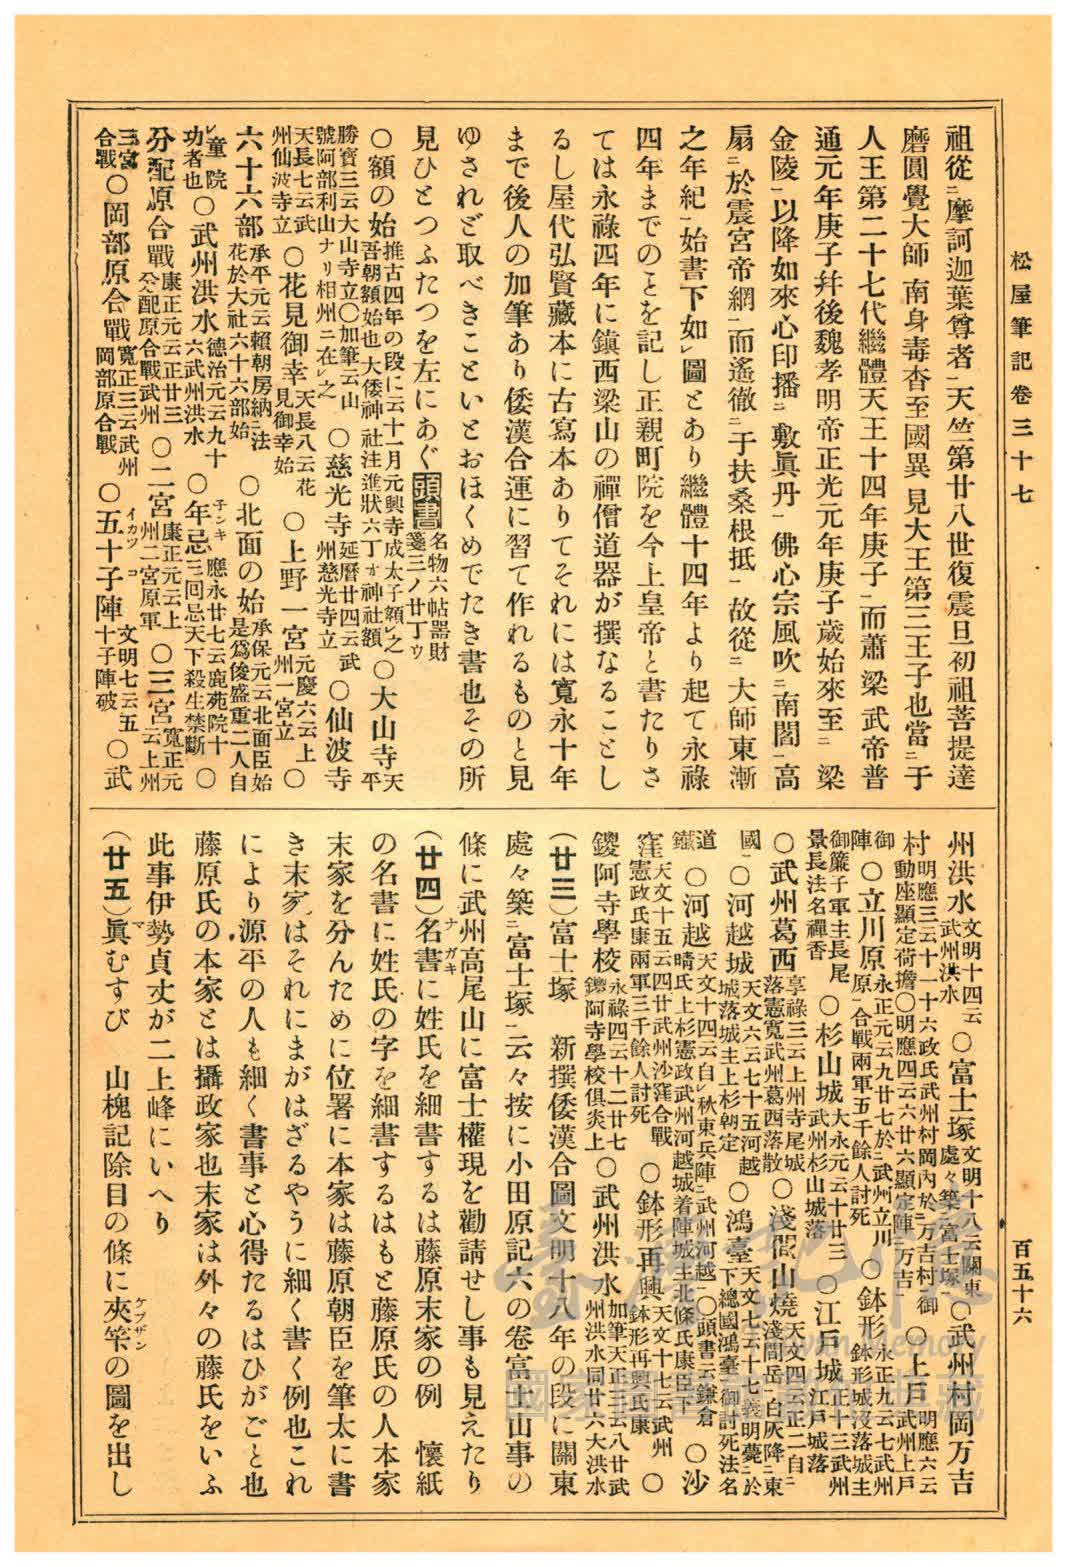 松屋筆記卷三十七
百五十六
祖從ニ摩訶迦葉尊者一天竺第廿八世復震旦初祖菩提達
磨圓覺大師 南身毒沓至國異 見大王第三王子也當ニ于
人王第二十七代繼體天王十四年庚子一而蕭 梁 武帝普
通元年庚子幷後魏孝明帝正光元年庚子歲始來至ニ 梁
金陵一以降如來心印播ニ 敷眞丹一 佛心宗風吹ニ南閻一高
扇ニ於震宮帝網一而遙徹ニ于扶桑根抵一 故從ニ 大師東漸
之年紀一始書下如レ圖とあり繼體十四年より起て永祿
四年までのとを記し正親町院を今上皇帝と書たりさ
ては永祿四年に鎭西梁山の禪僧道器が撰なることし
るし屋代弘賢藏本に古寫本ありてそれには寬永十年
まで後人の加筆あり倭漢合運に習て作れるものと見
ゆされど取べきこといとおほくめでたき書也その所
見ひとつふたつを左にあぐ頭書名物六帖器財箋三ノ廿丁ウ
○額の始推古四年の段に云十一月元興寺成太子額レ之吾朝額始也大倭神社注進狀六丁オ神社額○大山寺天平
勝寶三云大山寺立○加筆云山號阿部利山ナリ相州ニ在レ之○慈光寺延曆廿四云武州慈光寺立○仙波寺
天長七云武州仙波寺立○花見御幸天長八云花見御幸始○上野一宮元慶六云上州一宮立○
六十六部承平元云賴朝房納ニ法花於大社六十六部始○北面の始承保元云北面臣始是爲俊盛重二人自
レ童院功者也○武州洪水德治元云九十六武州洪水○年忌子ンキ應永廿七云鹿苑院十三回忌天下殺生禁斷○
分配原合戰康正元云正廿三分配原合戰武州○二宮康正元云上州二宮原軍○三宮寬正元云上州
三宮合戰○岡部原合戰寬正三云武州岡部原合戰○五十子陣イカツコ文明七云五十子陣破○武
州洪水文明十四云武州洪水○富士塚文明十八云關東處々築ニ富士塚一○武州村岡万吉
村明應三云十一十六政氏武州村岡內於ニ万吉村一御動座顯定荷擔○明應四云六廿六顯定陣ニ万吉一○上戶明應六云武州上戶
御陣○立川原永正元云九廿七於ニ武州立川原一合戰兩軍五千餘人討死○鉢形永正九云七武州鉢形城沒落城主
御簾子軍主長尾景長法名禪香○杉山城大永元云十廿三武州杉山城落○江戶城正十三武州江戶城落
○武州葛西享祿三云上州寺尾城落憲寬武州葛西落散○淺間山燒天文四云正二自ニ淺間岳一白灰降ニ東
國一○河越城天文六云七十五河越城落城主上杉朝定○鴻臺天文七云十七義明薨ニ於下總國鴻臺一御討死法名
道鐵○河越天文十四云自レ秋東兵陣ニ武州河越一○頭書云鎌倉晴氏上杉憲政武州河越城着陣城主北條氏康臣下○沙
窪天文十五云四廿武州沙窪合戰憲政氏康兩軍三千餘人討死○鉢形再興天文十七云武州鉢形再興氏康○
鑁阿寺學校永祿四云十二廿七鑁阿寺學校倶炎上○武州洪水加筆天正三云八廿武州洪水同廿六大洪水
(廿三)富士塚 新撰倭漢合圖文明十八年の段に關東
處々築ニ富士塚一云々按に小田原記六の卷富士山事の
條に武州高尾山に富士權現を勸請せし事も見えたり
(廿四)名書ナガキに姓氏を細書するは藤原末家の例 懷紙
の名書に姓氏の字を細書するはもと藤原氏の人本家
末家を分んために位署に本家は藤原朝臣を筆太に書
き末家はそれにまがはざるやうに細く書く例也これ
により源平の人も細く書事と心得たるはひがごと也
藤原氏の本家とは攝政家也末家は外々の藤氏をいふ
此事伊勢貞丈が二上峰にいへり
(廿五)眞マむすび 山槐記除目の條に夾筭ケフザンの圖を出し